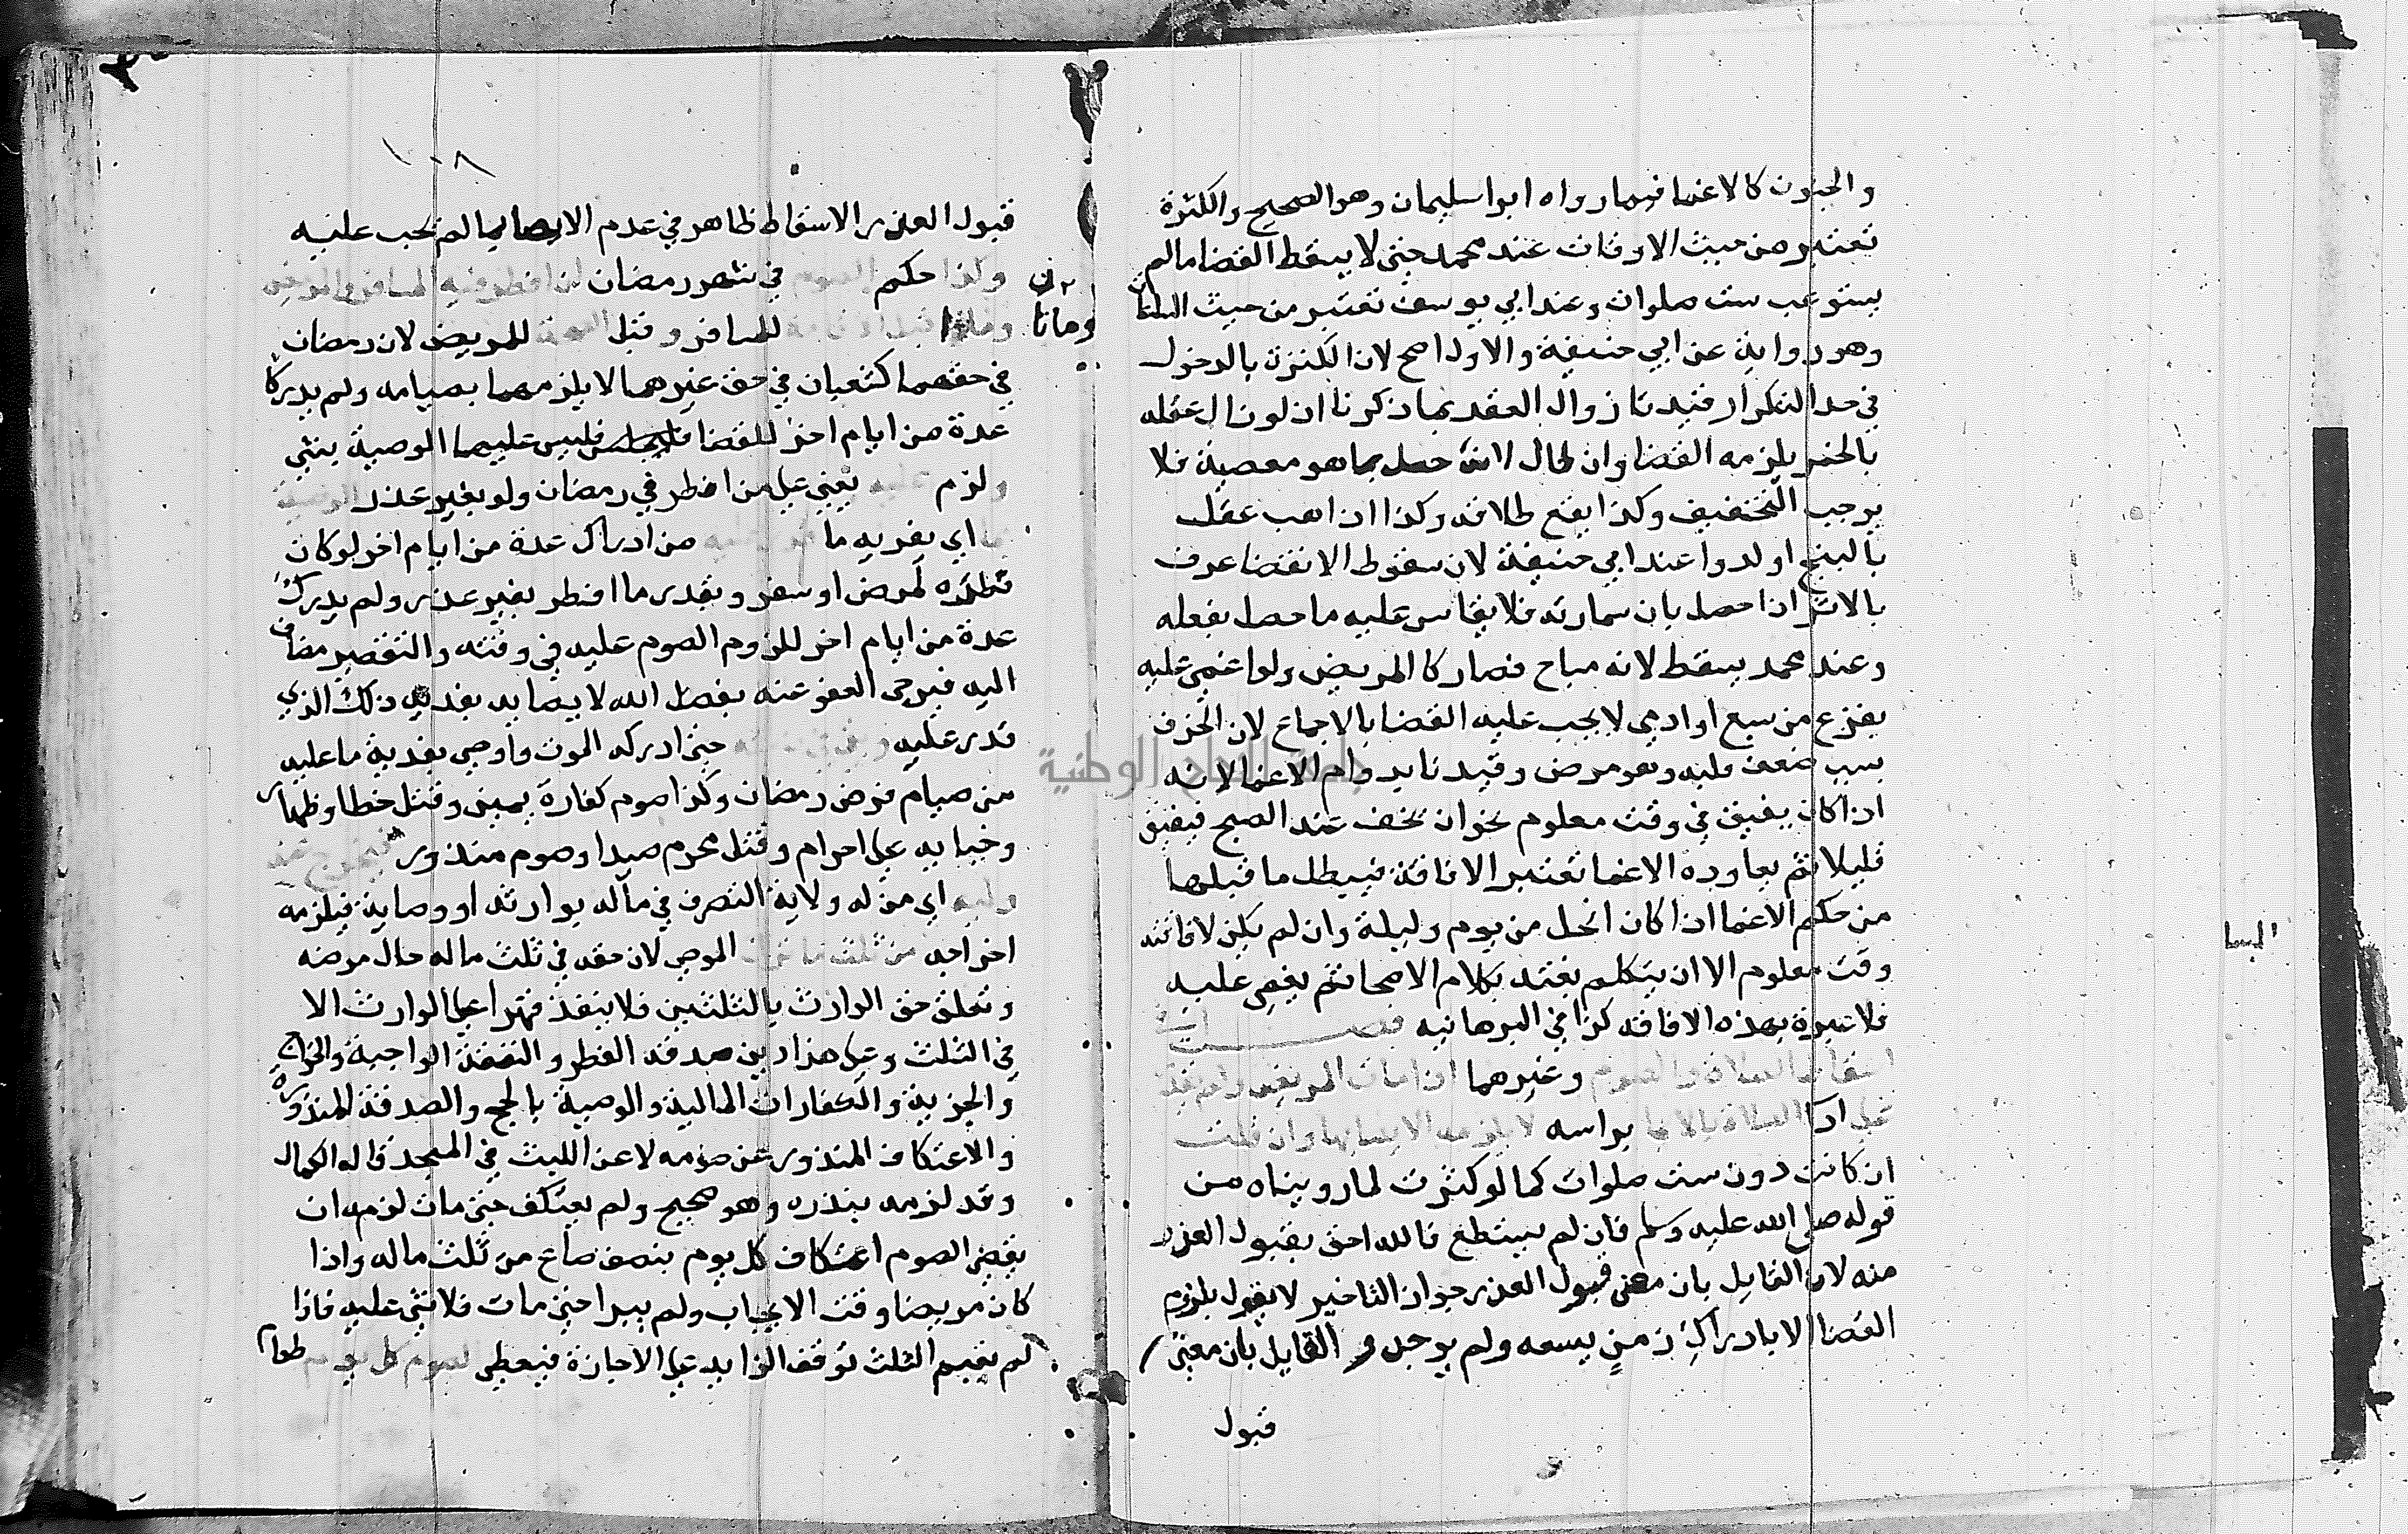 والجنون كالاغما فيما رواه ابوا سليمان وهو الصحيح والكثرة
تعتبر من حيث الاوقات عند محمد حتى لا يسقط القضا مالم
يستوعب ست صلوات وعند ابي يوسف تعتبر من حيث الساعات
وهو رواية عن ابي حنيفة والاول اصح لان الكثرة بالدخول
في حد التكرار قيدنا زوال العقد بما ذكرنا اذ لو زال عقله
بالخمر يلزمه القضا وان طال لانه حصل بما هو معصية فلا
يوجب التخفيف وكذا يقع طلاقه وكذا اذا اهب عقله
بالبنج او لدوا عند ابي حنيفة لان سقوط الانقضا عرف
بالاثر اذا حصل بان سماوية فلا يقاس عليه ما حصل بفعله
وعند محمد يسقط لانه مباح فصار كالمريض ولو اغمي عليه
بفزع من سبع او ادمي لا يجب عليه القضا بالاجماع لان الخوف
بسبب ضعف قلبه وهو مرض وقيدنا بدوام الاغما لانه
اذا كان يفيق في وقت معلوم نحو ان يخف عند الصبح فيفيق
قليلا ثم يعاوده الاغما تعتبر الافاقة فيبطل ما قبلها
من حكم الاغما اذا كان اقل من يوم وليلة وان لم يكن لافاقته
وقت معلوم الا ان يتكلم بغتة بكلام الاصحا ثم يغمى عليه
فلا عبرة بهذه الافاقة كذا في البرهانيه فصل
اسقاط الصلاة والصوم وغيرهما اذا مات المريض ولم يقدر
على ادا الصلاة بالايما براسه لا يلزمه الايصا بها وان قلت
ان كانت دون ست صلوات كما لو كثرت لما رويناه من
قوله صلى الله عليه وسلم فان لم يستطع فالله احق بقبول العذر
منه لان القايل بان معنى قبول العذر جواز التاخير لا يقول بلزوم
القضا الا بادراك زمن يسعه ولم يوجد و القايل بان معنى
قبول
١٠٨
قبول العذر الاسقاط ظاهر في عدم الايصا بما لم يجب عليه
وكذا حكم الصوم في شهر رمضان ان افطر فيه المسافر والمريض
وماتا قبل الاقامة للمسافر وقبل الصحة للمريض لان رمضان
في حقهما كشعبان في حق غيرهما لا يلزمهما بصيامه ولم يدركا
عدة من ايام اخر للقضا فليس عليهما الوصية بشي
ولزم عليه يعني على من افطر في رمضان ولو بغير عذر الوصية
بما اي بفدية ما قدر عليه من ادراك عدة من ايام اخر لو كان
فطره لمرض او سفر وبقدر ما افطر بغير عذر ولم يدرك
عدة من ايام اخر للزوم الصوم عليه في وقته والتقصير مضاف
اليه فيرجى العفو عنه بفضل الله لايصايه بفدية ذلك الذي
قدر عليه حتى ادركه الموت واوصى بفدية ما عليه
من صيام فرض رمضان وكذا صوم كفارة يمين وقتل خطا وظهار
وجناية على احرام وقتل محرم صيدا وصوم منذور فيخرج عنه
وليه اي من له ولاية التصرف في ماله بوارثه او وصاية فيلزمه
اخراجه من ثلث ما ترك الموصي لان حقه في ثلث ماله حال مرضه
وتعلق حق الوارث بالثلثين فلا ينفذ قهرا على الوارث الا
في الثلث وعلى هذا دين صدقة الفطر والنفقة الواجبة والخراج
والجزية والكفارات المالية والوصية بالحج والصدقة المنذورة
والاعتكاف المنذور عن صومه لا عن اللبث في المسجد قاله الكمال
وقد لزمه بنذره وهو صحيح ولم يعتكف حتى مات لزمه ان
يقضي الصوم اعتكاف كل يوم بنصف صاع من ثلث ماله واذا
كان مريضا وقت الايجاب ولم يبرا حتى مات فلا شي عليه فاذا
لم يف بهم الثلث توقف الزايد على الاجازة فيعطي لصوم كل يوم طعام